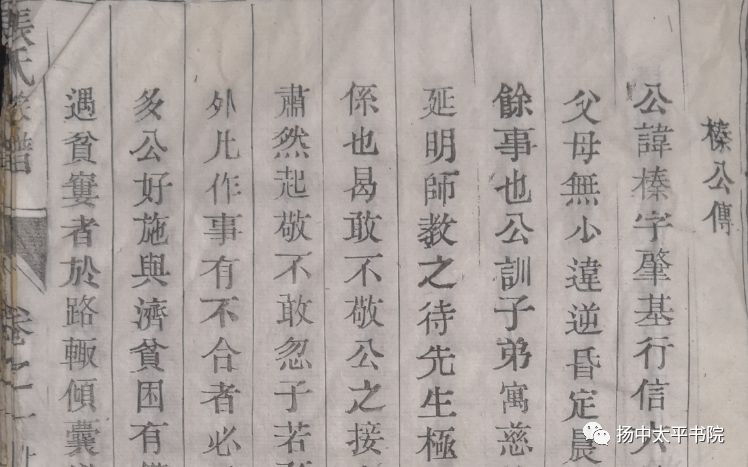 榛公傳
公諱榛字肇基行信
父母無少違逆昏定晨
餘事也公訓子弟寓慈
延明師教之待先生極
係也曷敢不敬公之接
肅然起敬不敢忽于若
外凡作事有不合者必
多公好施與濟貧困有
遇貧窶者於路輙傾囊
張氏 譜
卷之一
扬中太平书院